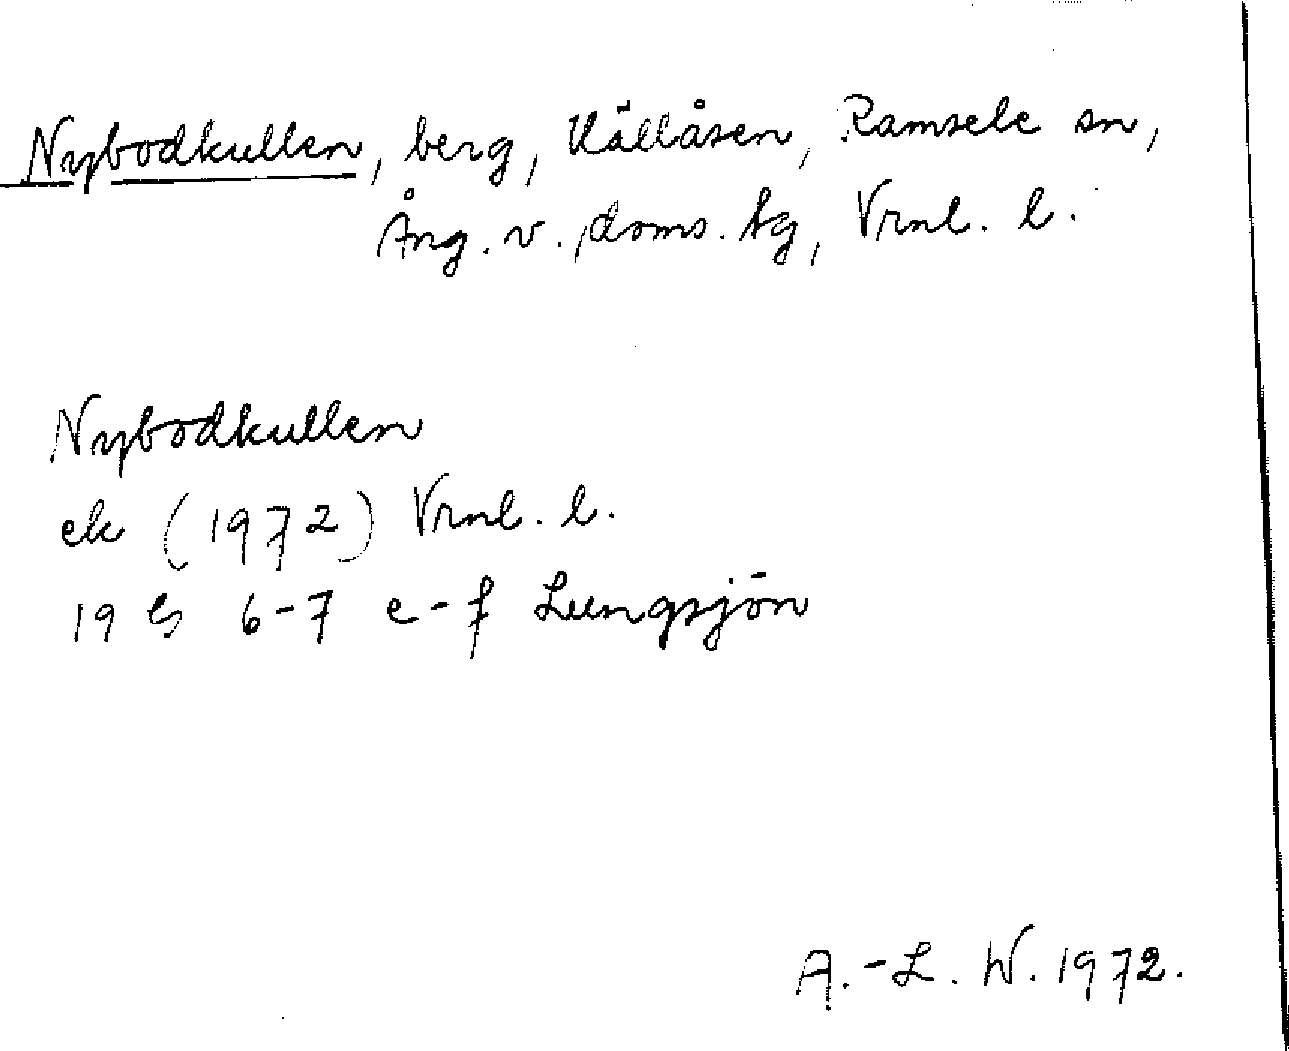 Nybodkullen, berg, Källåsen, Ramsele sn,
Ång. v., doms. tg, Vrnl. l.
Nybodkullen
ek (1972) Vrnl. l.
19 G 6-7 e-f Lungsjön
A.-L. W. 1972.